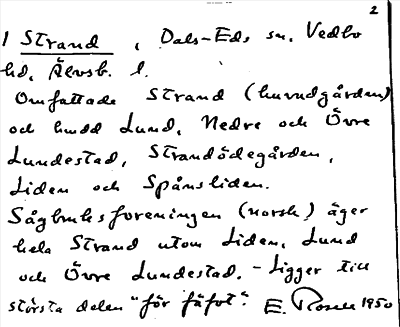 2
1 Strand, Dals-Eds sn. Vedbo
hd, Älvsb. l.
Omfattade Strand (huvudgården)
och hmdd Lund, Nedre och Övre
Lundestad, Strandödegården,
Liden och Spånsliden.
Sågbruksföreningen (norsk) äger
hela Strand utom Liden, Lund
och Övre Lundestad. - Ligger till
största delen "för fäfot". E. Rosell 1950